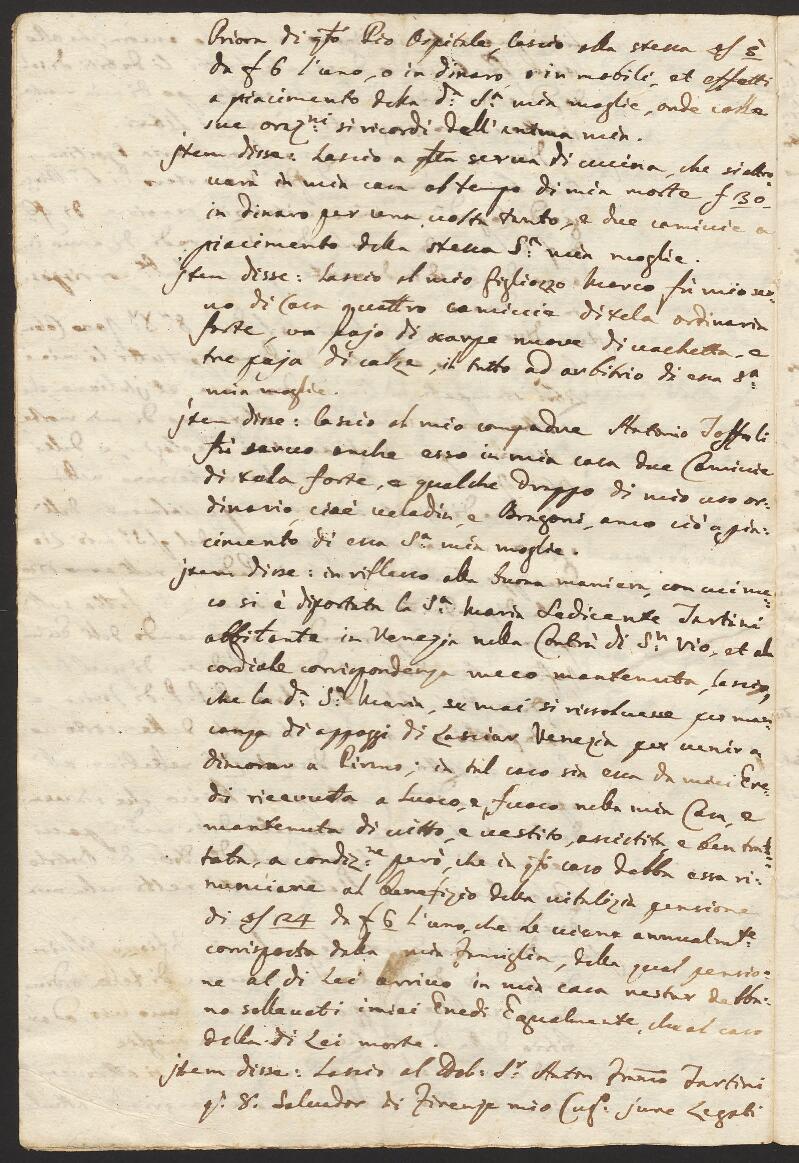 Priora di q͞to Pio Ospitale, lascio alla stessa df 5
da f 6 l'uno, o in dinaro, o in mobili, et effetti
a piacimento della d.ª S.ª mia moglie, onde colle
sue oraz.ni si ricordi dell'anima mia.
jtem disse: Lascio a q͞lla serva di cucina, che si attro-
varà in mia casa al tempo di mia morte f 30-
in dinaro per una volta tanto, e due camicie a
piacimento della stessa S.ª mia moglie.
jtem disse: Lascio al mio figliozzo Marco fù mio ser-
vo di Casa quattro camiccie di tela ordinaria
forte, un pajo di scarpe nuove di vachetta, e
tre paja di calze, il tutto ad arbitrio di essa S.ª
mia moglie.
jtem disse: lascio al mio compadre Antonio Toffoli
fù servo anche esso in mia casa due Camicie
di tela forte, e qualche drappo di mio uso or-
dinario, cioè veladin, e Bragoni, anco ciò a pia-
cimento di essa S.ª mia moglie.
jtem disse: in riflesso alla buona maniera, con cui me-
co si è diportata la S.ª Maria Ledicente Tartini
abbitante in Venezia nella Contrà di S.n Vio, et alla
cordiale corrispondenza meco mantenuta, lascio,
che la d.ª S.ª Maria, se mai si rissolvesse per man-
canza di appoggi di Lasciar Venezia per venir a
dimorar a Pirano; in tal caso sia essa da miei Ere-
di ricevuta a Luoco, e fuoco nella mia Casa, e
mantenuta di vitto, e vestito, assistita, e ben trat-
tata, a condiz.ne però, che in q͞to caso debba essa ri-
nunciare al benefizio della vitalizia pensione
di df 24 da f 6 l'uno, che Le viene annualm.te
corrisposta dalla mia Famiglia, dalla qual pensio-
ne al di Lei arrivo in mia casa restar debba-
no sollevati i miei Eredi Egualmente, che al caso
della di Lei morte.
jtem disse: Lascio al Dob: S.r Anton Fran͞co Tartini
q.m S. Salvador di Firenze mio Cug.o jure Legati